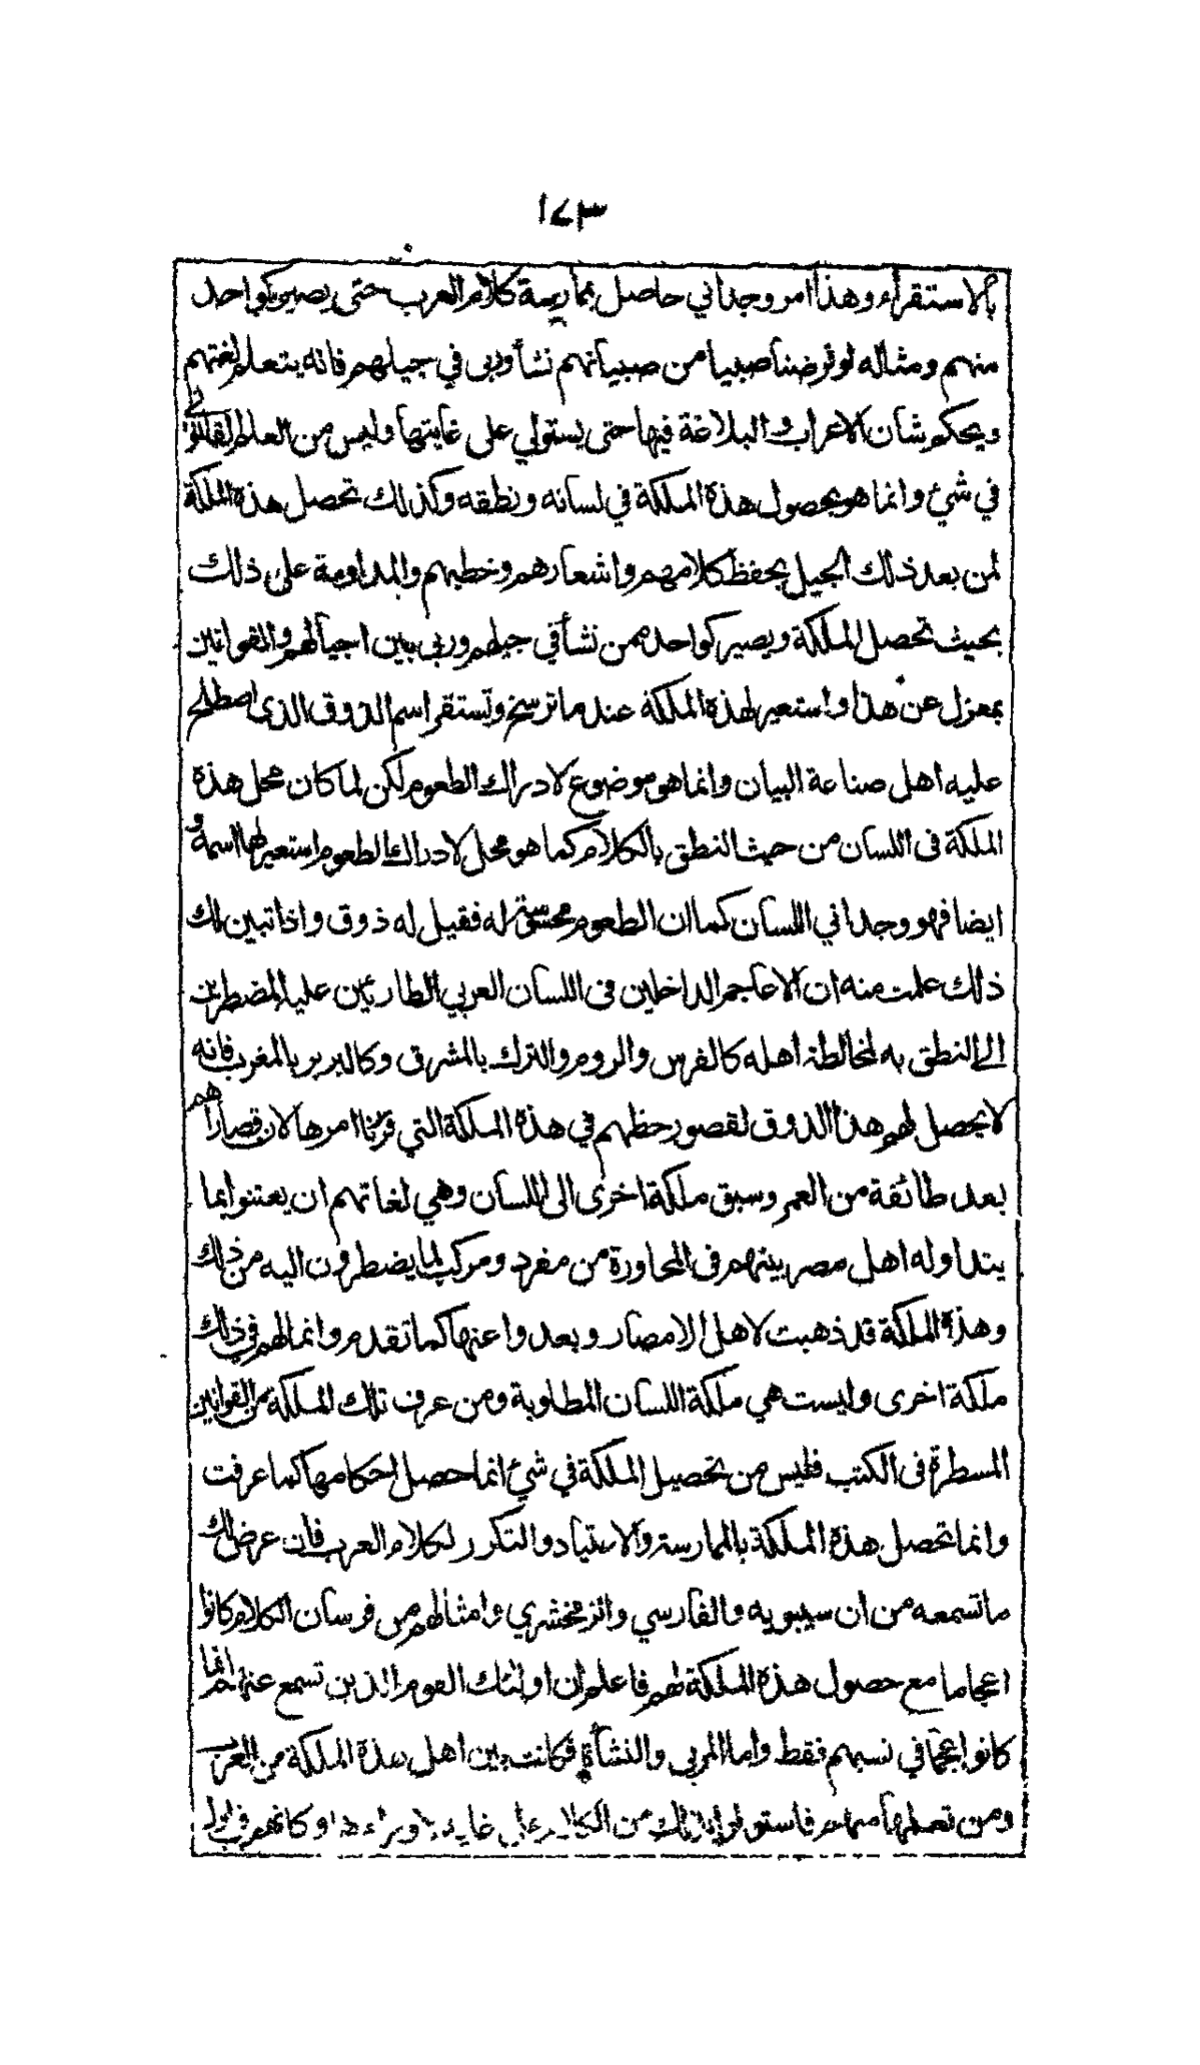 ١٧٣
بالاستقراء وهذا امر وجداني حاصل بممارسة كلام العرب حتى يصير كواحد
منهم ومثاله لو فرضنا صبيا من صبيانهم نشأ وربى في جيلهم فانه يتعلم لغتهم
ويحكم شان الاعراب والبلاغة فيها حتى يستولي على غايتها وليس من العلم القانوني
في شئ وانما هو بحصول هذه الملكة في لسانه ونطقه وكذلك تحصل هذه الملكة
لمن بعد ذلك الجيل بحفظ كلامهم واشعارهم وخطبهم والمداومة على ذلك
بحيث تحصل الملكة ويصير كواحد ممن نشأ في جيلهم وربى بين اجيالهم والقوانين
بمعزل عن هذا واستعير لهذه الملكة عند ما ترسخ وتستقر اسم الذوق الذى اصطلح
عليه اهل صناعة البيان وانما هو موضوع لادراك الطعوم لكن لما كان محل هذه
الملكة فى اللسان من حيث النطق بالكلام كما هو محل لادراك الطعوم استعير لها اسمه و
ايضا فهو وجداني اللسان كما ان الطعوم محسوسة له فقيل له ذوق واذا تبين لك
ذلك علمت منه ان الاعاجم الداخلين فى اللسان العربي الطارئين عليه المضطرين
الى النطق به لمخالطة اهله كالفرس والروم والترك بالمشرق وكالبربر بالمغرب فانه
لا يحصل لهم هذا الذوق لقصور حظهم في هذه الملكة التي قررنا امرها لان قصاراهم
بعد طائفة من العمر وسبق ملكة اخرى الى اللسان وهي لغاتهم ان يعتنوا بما
يتداوله اهل مصر بينهم فى المحاورة من مفرد ومركب لما يضطرون اليه من ذلك
وهذه الملكة قد ذهبت لاهل الامصار وبعدوا عنها كما تقدم وانما لهم في ذلك
ملكة اخرى وليست هي ملكة اللسان المطلوبة ومن عرف تلك الملكة من القوانين
المسطرة فى الكتب فليس من تحصيل الملكة في شئ انما حصل احكامها كما عرفت
وانما تحصل هذه الملكة بالممارسة والاعتياد والتكرر لكلام العرب فان عرض لك
ما تسمعه من ان سيبويه والفارسي والزمخشري وامثالهم من فرسان الكلام كانوا
اعجاما مع حصول هذه الملكة لهم فاعلم ان اولئك القوم الذين تسمع عنهم انما
كانوا عجما في نسبهم فقط واما المربى والنشأة فكانت بين اهل هذه الملكة من العرب
ومن تعلمها منهم فاستولوا بذلك من الكلام على غاية لا وراءها وكانهم في اول